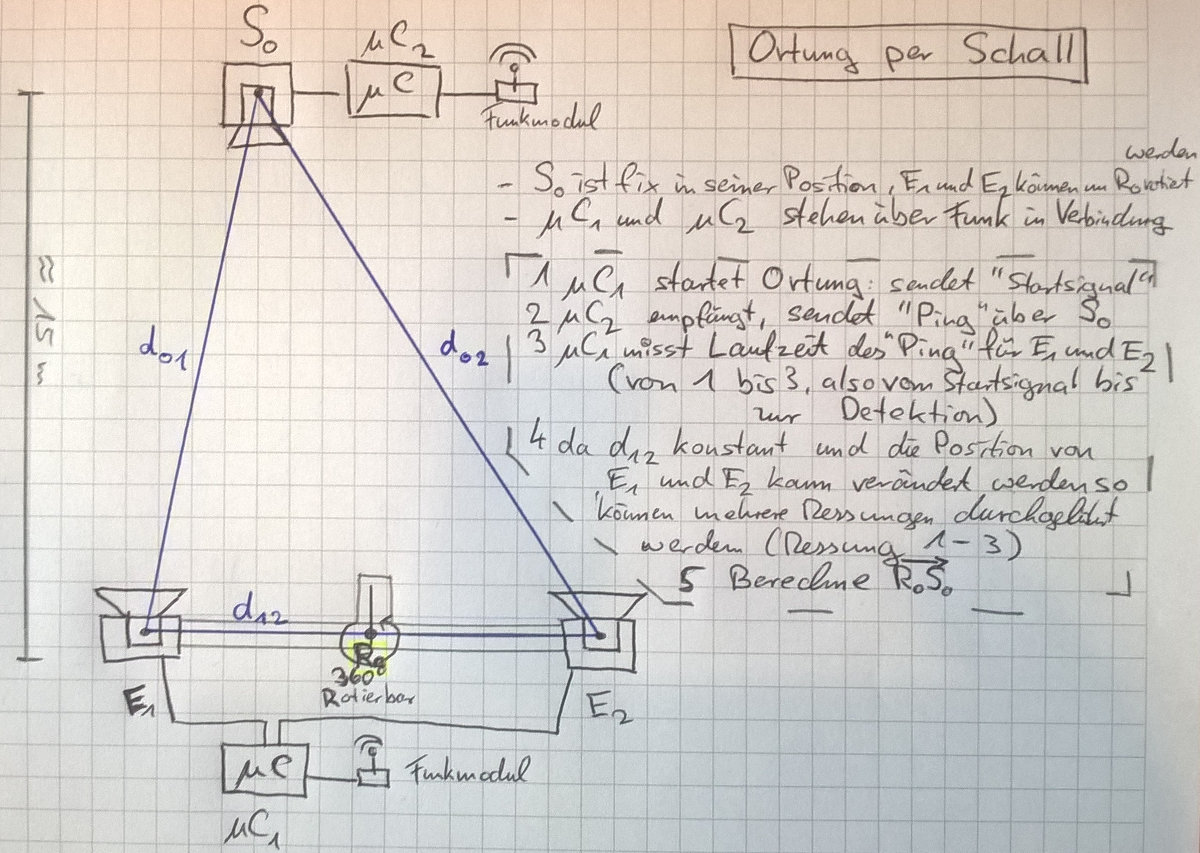 Ortung per Schall
S₀
µC₂
µC
Funkmodul
werden
- S₀ ist fix in seiner Position, E₁ und E₂ können um R₀ rotiert
- µC₁ und µC₂ stehen über Funk in Verbindung
1 µC₁ startet Ortung: sendet "Startsignal"
2 µC₂ empfängt, sendet "Ping" über S₀
3 µC₁ misst Laufzeit des "Ping" für E₁ und E₂
(von 1 bis 3, also vom Startsignal bis
zur Detektion)
4 da d₁₂ konstant und die Position von
E₁ und E₂ kann verändert werden so
können mehrere Messungen durchgeführt
werden (Messung 1-3)
5 Berechne R₀S₀
≈ 15 m
d₀₁
d₀₂
d₁₂
R₀
360°
Rotierbar
E₁
E₂
µC
Funkmodul
µC₁